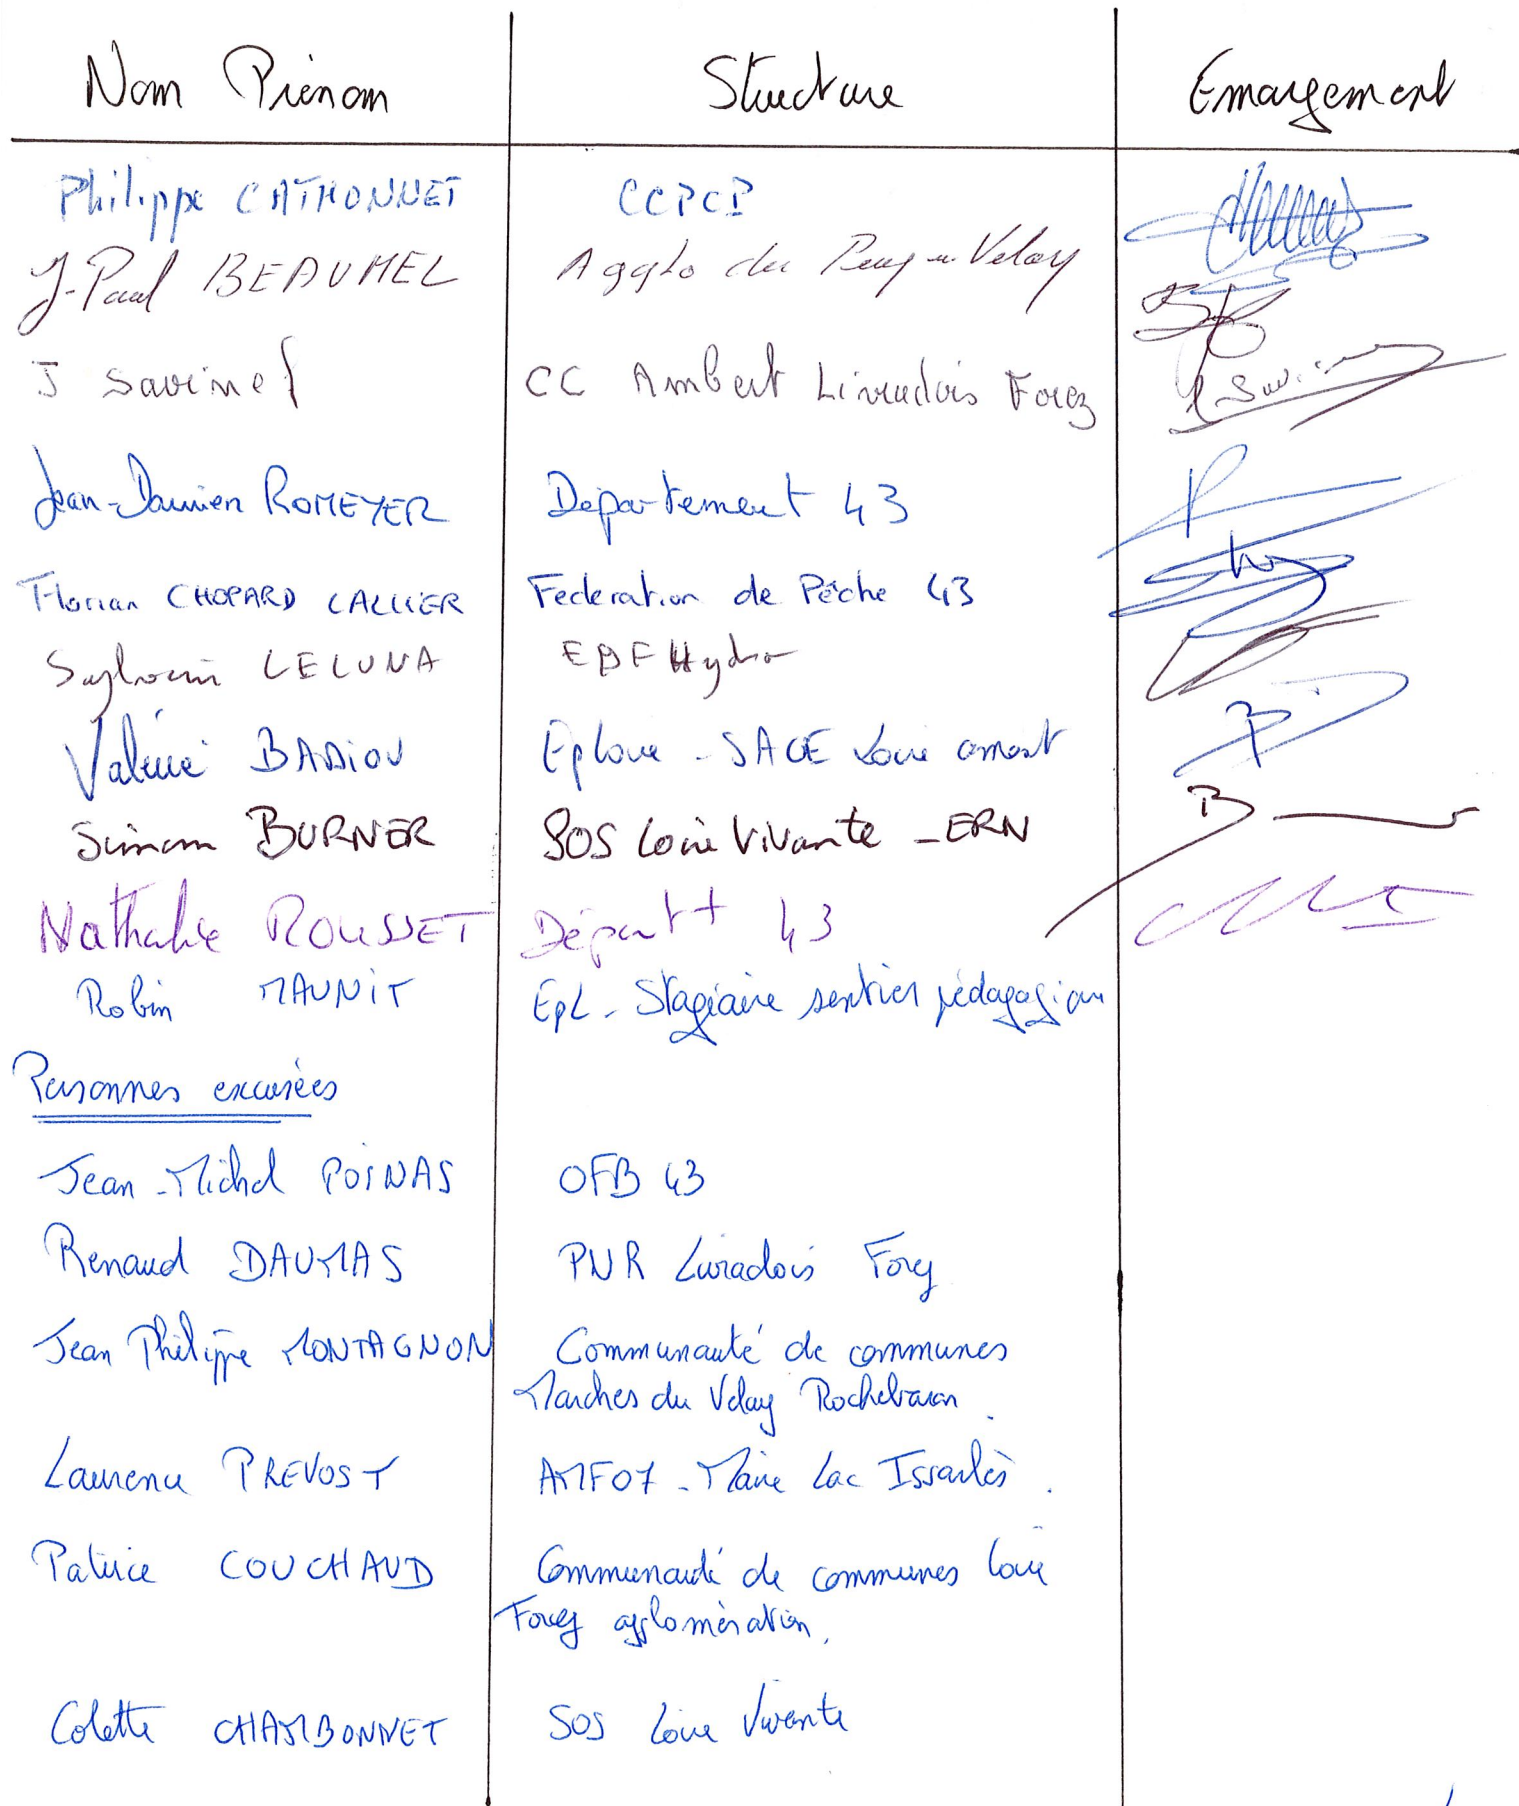 Nom Prénom Structure Emargement
Philippe CATHONNET CCPCP
J-Paul BEAUMEL Agglo du Puy en Velay
J Savinel CC Ambert Livradois Forez
Jean-Damien ROMEYER Département 43
Florian CHOPARD LALLIER Federation de Pêche 43
Sylvain LECUNA EDF Hydro
Valérie BADIOU Eploire - SAGE Loire amont
Simon BURNER SOS Loire Vivante - ERN
Nathalie ROUSSET Départt 43
Robin MAUNIT EpL - Stagiaire sentier pédagogique
Personnes excusées
Jean-Michel POINAS OFB 43
Renaud DAUMAS PNR Livradois Forez
Jean Philippe MONTAGNON Communauté de communes
Marches du Velay Rochebaron
Laurence PREVOST AMF07 - Maire Lac Issarlès
Patrice COUCHAUD Communauté de communes Loire
Forez agglomération.
Colette CHAMBONNET SOS Loire Vivante